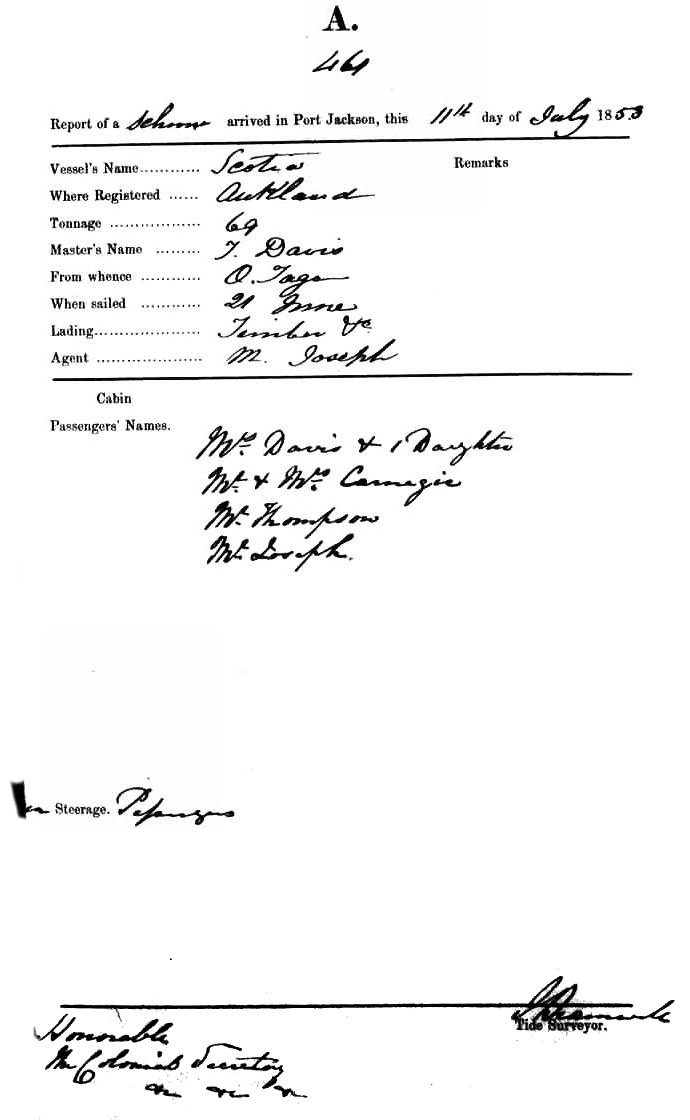 A.
461
Report of a Schooner arrived in Port Jackson, this 11th day of July 1853
Vessel's Name............ Scotia Remarks
Where Registered ...... Aukland
Tonnage .................. 69
Master's Name ......... T. Davis
From whence ............ O. Tago
When sailed ............ 21 June
Lading..................... Timber &c
Agent ...................... M. Joseph
Cabin
Passengers' Names.
Mrs. Davis & 1 Daughter
Mr. & Mrs. Carnegie
Mr. Thompson
Mr. Joseph.
Steerage. Passengers
Tide Surveyor.
Honorable
The Colonial Secretary
&c &c &c